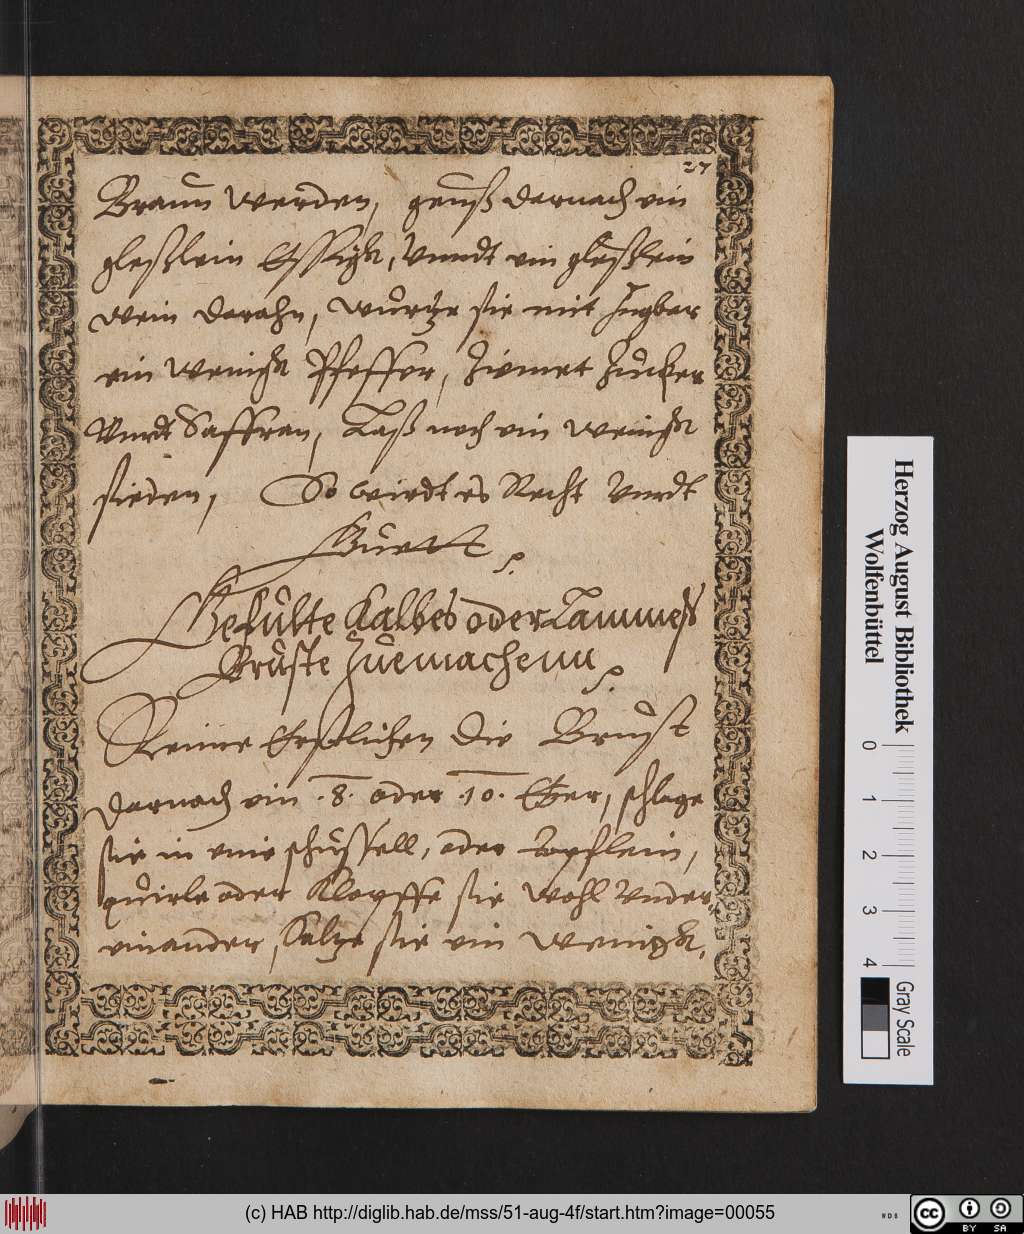 27
Braun werden, geuß darnach ein
gleßlein Essigk, Vnndt ein gleßlein
Wein darahn, würtze sie mit Ingber
ein wenigk Pfeffer, Zimmet Zucker
Vnndt Saffran, Laß noch ein wenigk
sieden, So wirdt es Recht Vnndt
Guett.
Gefülte Kalbes oder Lammeß
Brüste Zuemachenn.
Nimm Erstlichen die Brust
darnach ein .8. oder .10. Eyer, schlage
sie in eine schüssell, oder topflein,
quirle oder Klopffe sie wohl Vnder
einander, Saltze sie ein wenigk.
Herzog August Bibliothek
Wolfenbüttel
0
1
2
3
4
Gray Scale
(c) HAB http://diglib.hab.de/mss/51-aug-4f/start.htm?image=00055
WDB
cc
BY SA